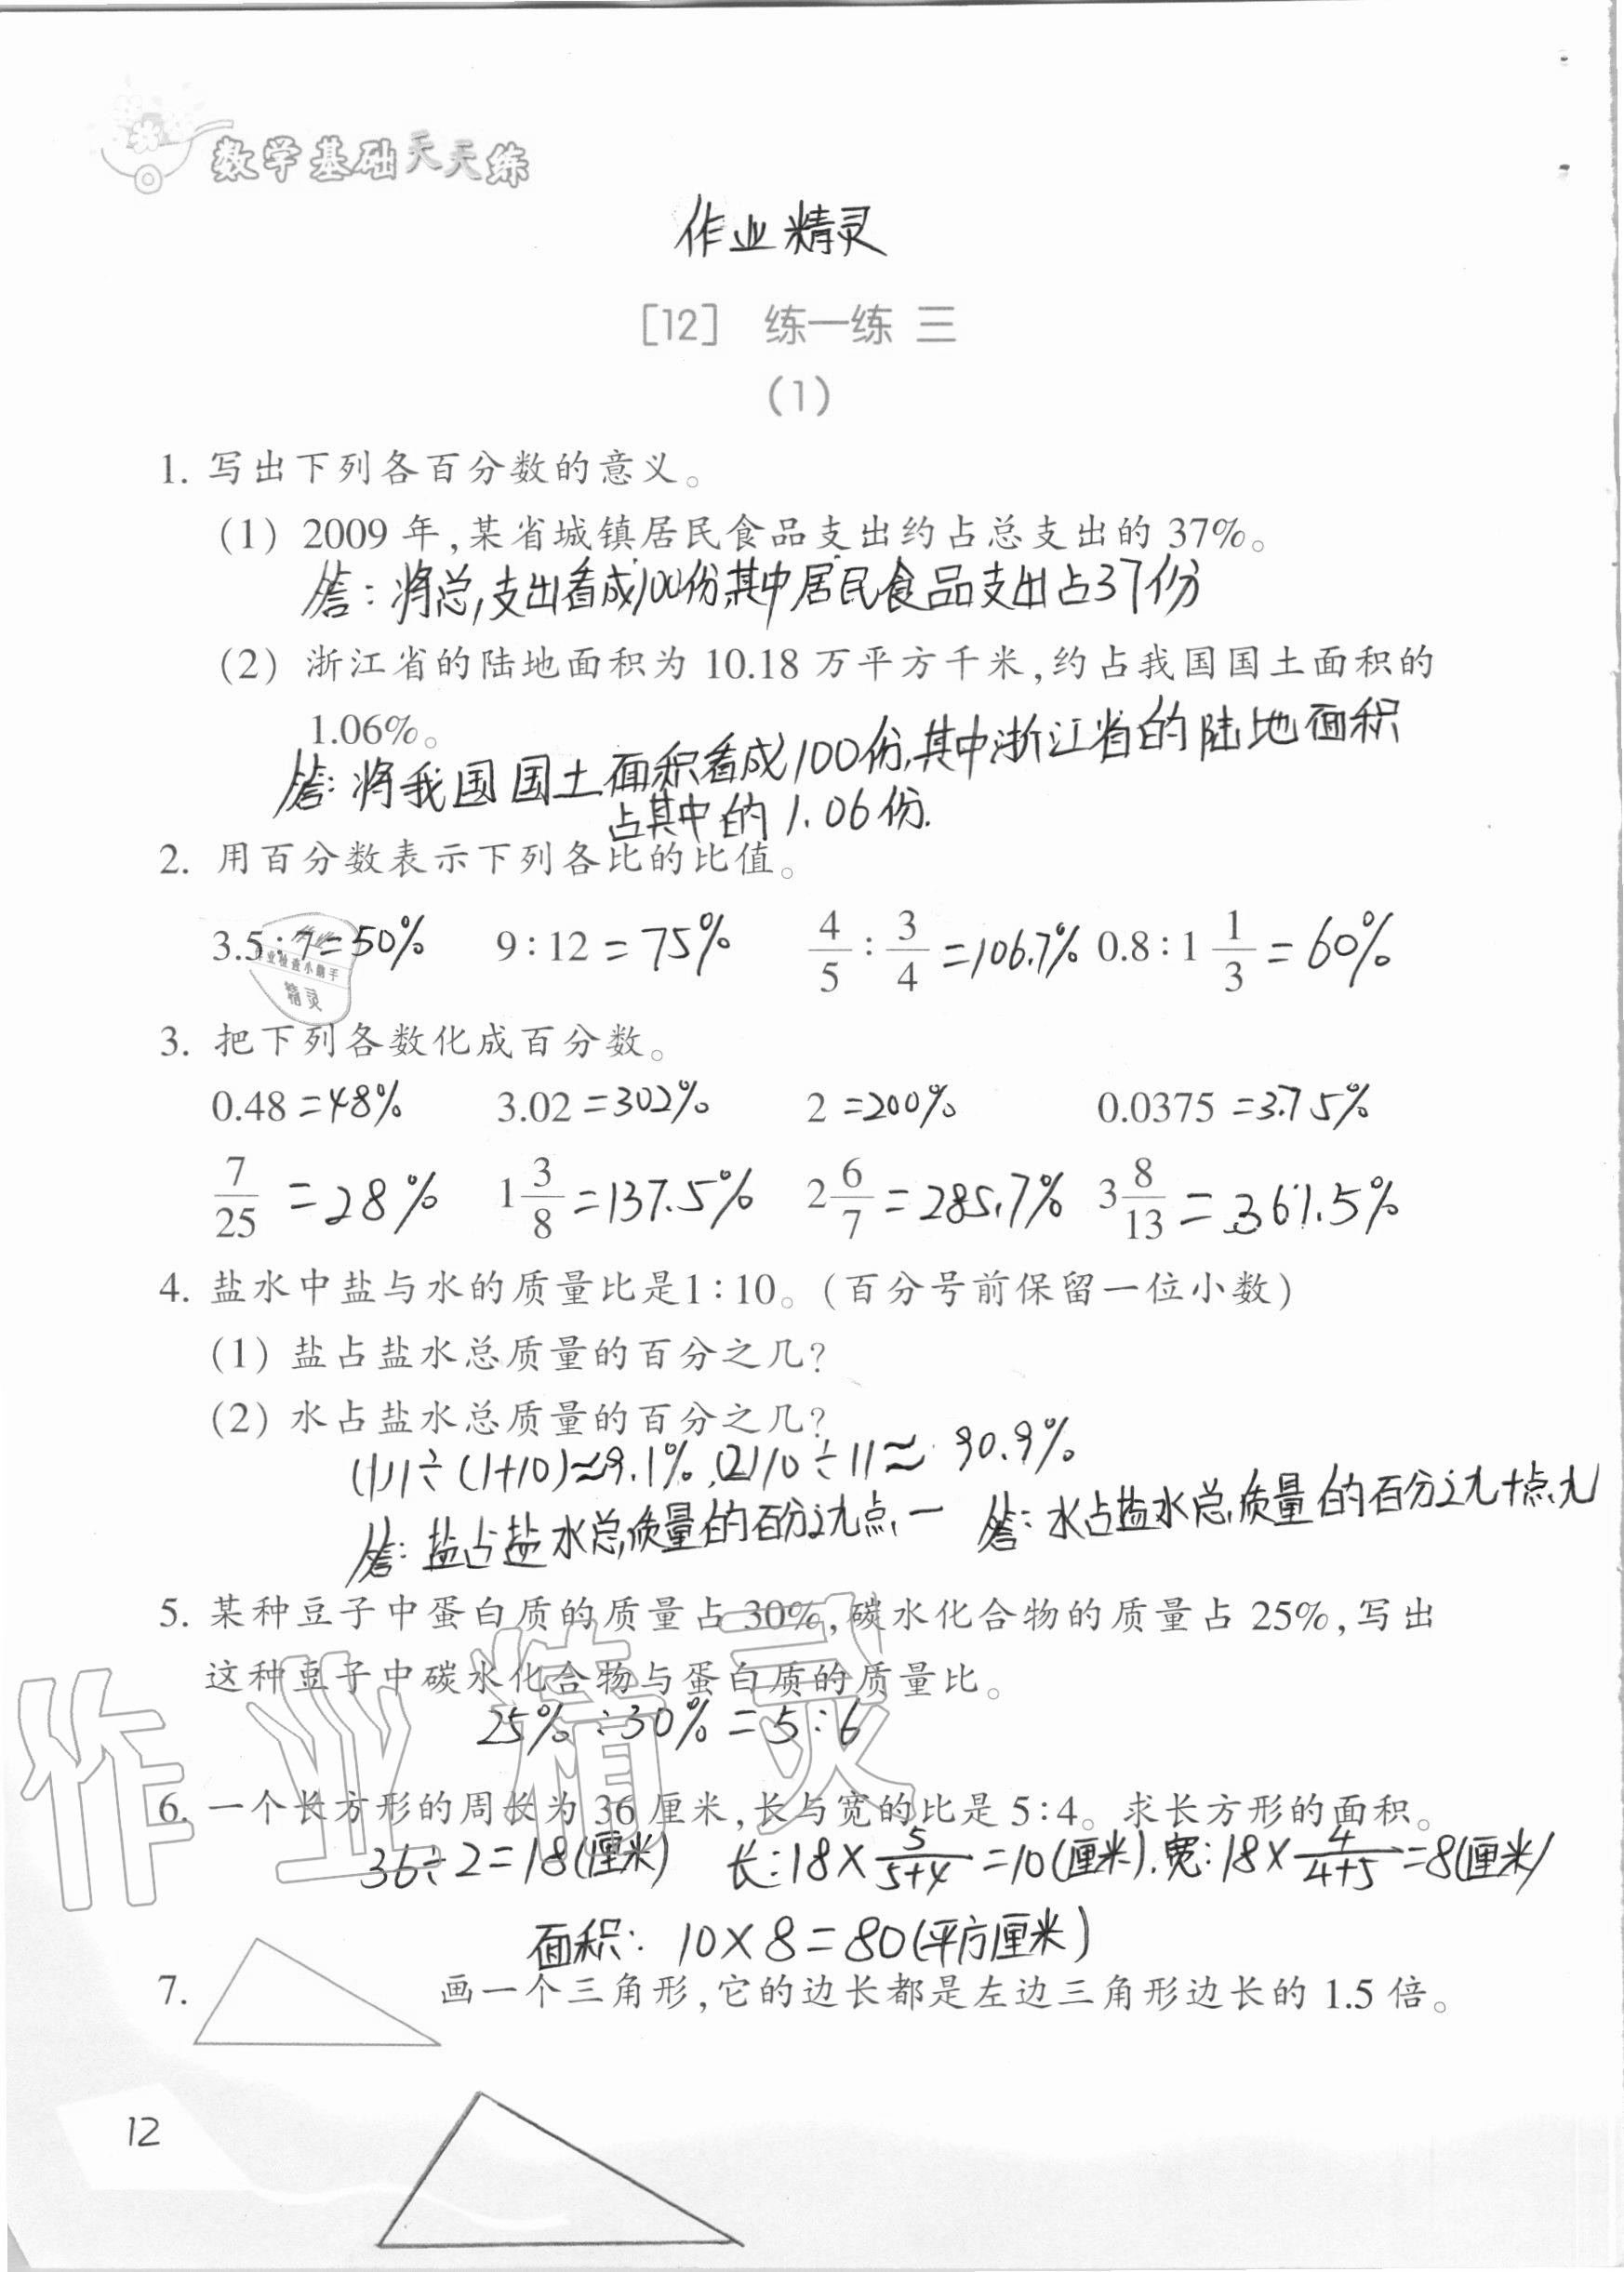 数学基础天天练
作业精灵
[12] 练一练 三
(1)
1. 写出下列各百分数的意义。
(1) 2009 年,某省城镇居民食品支出约占总支出的 37%。
答:将总支出看成100份,其中居民食品支出占37份
(2) 浙江省的陆地面积为 10.18 万平方千米,约占我国国土面积的
1.06%。
答:将我国国土面积看成100份,其中浙江省的陆地面积
占其中的1.06份.
2. 用百分数表示下列各比的比值。
3.5:7=50% 9:12=75% 4/5:3/4=106.7% 0.8:1 1/3=60%
作业检查小助手
精灵
3. 把下列各数化成百分数。
0.48=48% 3.02=302% 2=200% 0.0375=3.75%
7/25=28% 1 3/8=137.5% 2 6/7=285.7% 3 8/13=361.5%
4. 盐水中盐与水的质量比是1:10。(百分号前保留一位小数)
(1) 盐占盐水总质量的百分之几?
(2) 水占盐水总质量的百分之几?
(1)1÷(1+10)≈9.1%.(2)10÷11≈90.9%
答:盐占盐水总质量的百分之九点一 答:水占盐水总质量的百分之九十点九
5. 某种豆子中蛋白质的质量占 30%,碳水化合物的质量占 25%,写出
这种豆子中碳水化合物与蛋白质的质量比。
25%:30%=5:6
作业精灵
6. 一个长方形的周长为 36 厘米,长与宽的比是 5:4。求长方形的面积。
36÷2=18(厘米) 长:18×5/(5+4)=10(厘米).宽:18×4/(4+5)=8(厘米)
面积:10×8=80(平方厘米)
7. 画一个三角形,它的边长都是左边三角形边长的 1.5 倍。
12